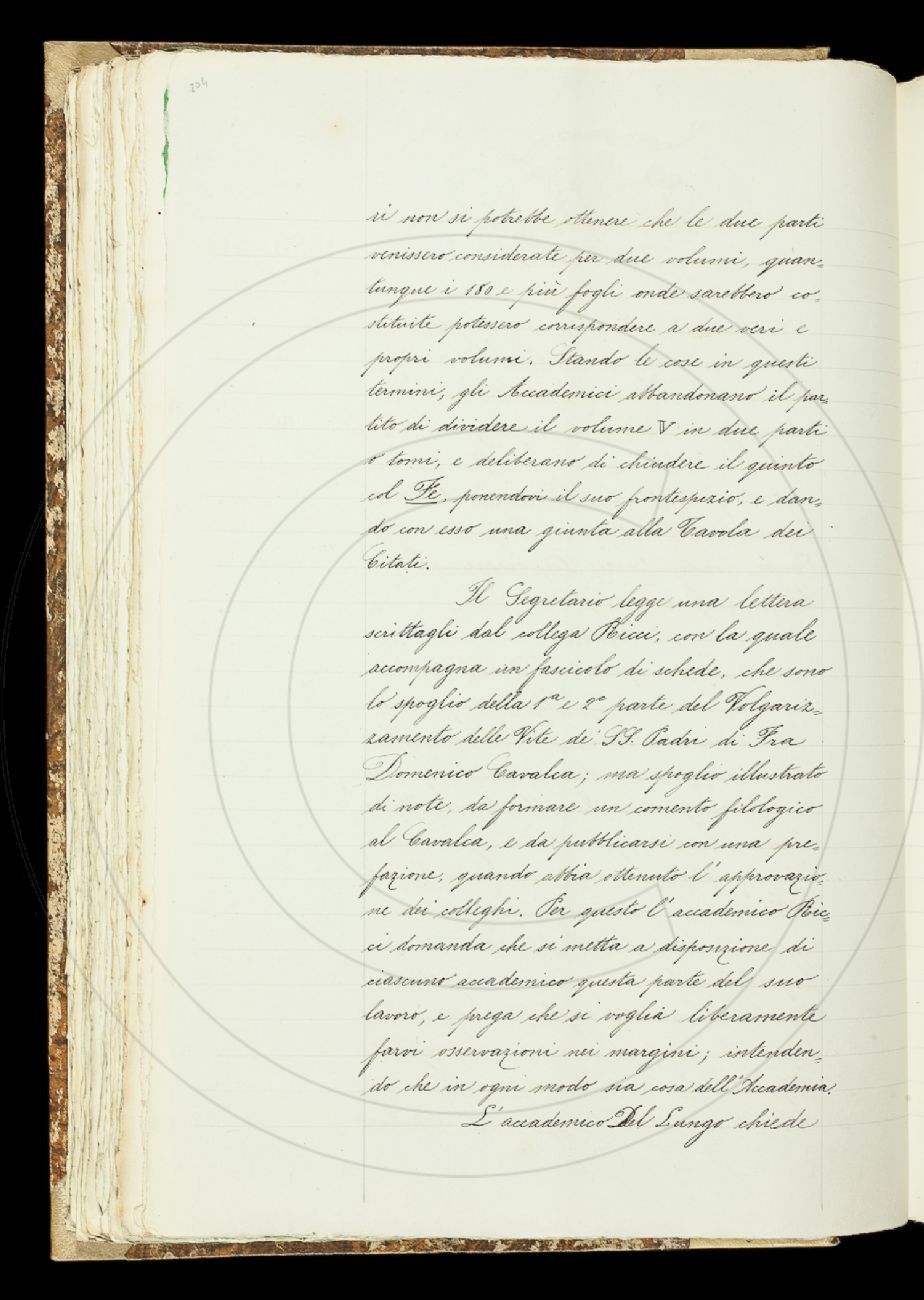 204
ri non si potrebbe ottenere che le due parti
venissero considerate per due volumi, quan=
tunque i 180 e più fogli onde sarebbero co=
stituite potessero corrispondere a due veri e
propri volumi. Stando le cose in questi
termini, gli Accademici abbandonano il par=
tito di dividere il volume V in due parti
o tomi, e deliberano di chiudere il quinto
col Fe, ponendovi il suo frontespizio, e dan=
do con esso una giunta alla Tavola dei
Citati.
Il Segretario legge una lettera
scrittagli dal collega Ricci, con la quale
accompagna un fascicolo di schede, che sono
lo spoglio della 1ª e 2ª parte del Volgariz=
zamento delle Vite de' SS. Padri di Fra
Domenico Cavalca; ma spoglio illustrato
di note, da formare un comento filologico
al Cavalca, e da pubblicarsi con una pre=
fazione, quando abbia ottenuto l'approvazio=
ne dei colleghi. Per questo l'accademico Ric=
ci domanda che si metta a disposizione di
ciascuno accademico questa parte del suo
lavoro, e prega che si voglia liberamente
farvi osservazioni nei margini; intenden=
do che in ogni modo sia cosa dell'Accademia.
L'accademico Del Lungo chiede